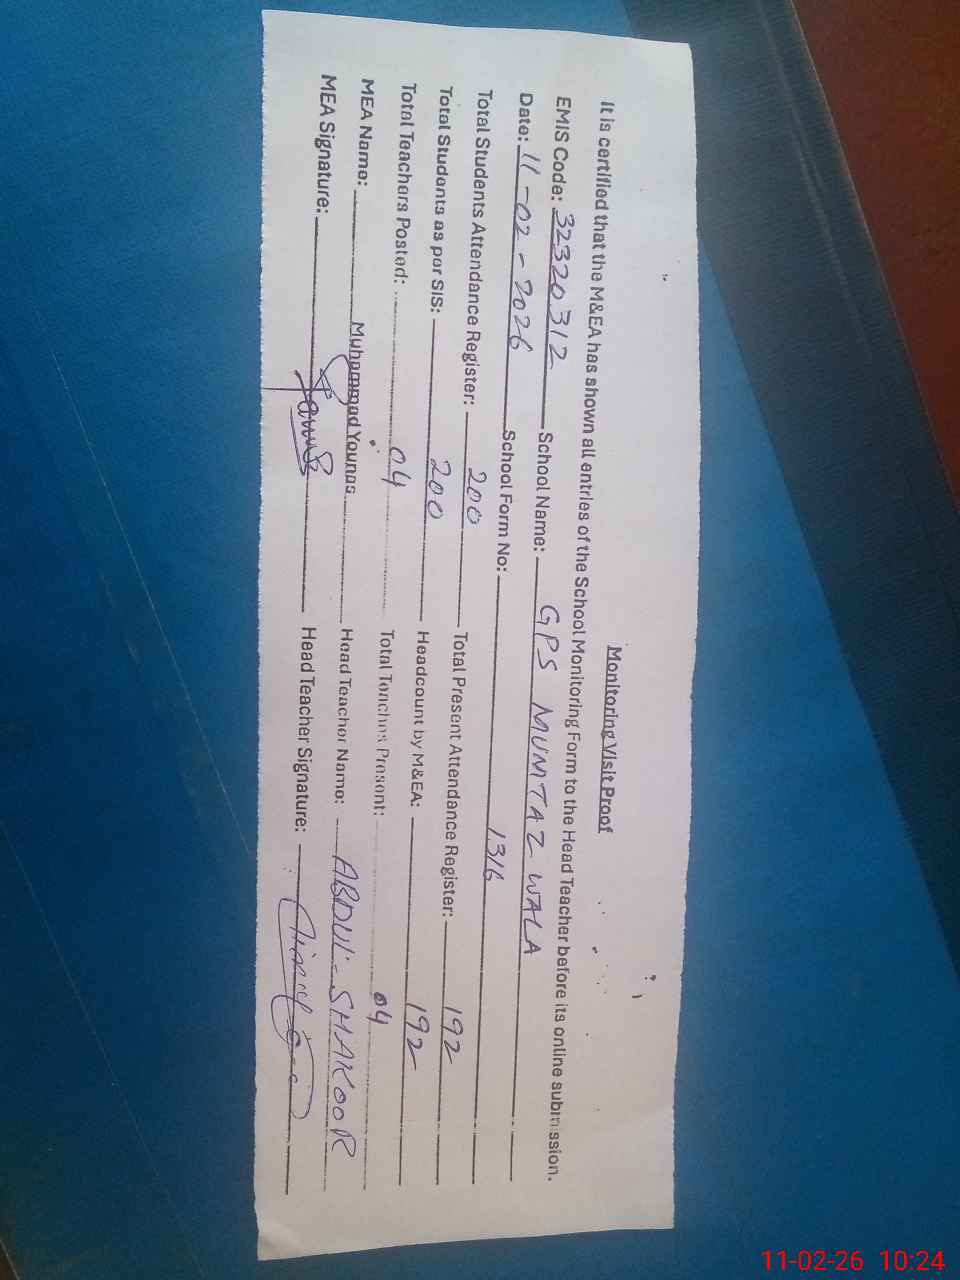 Monitoring Visit Proof
It is certified that the M&EA has shown all entries of the School Monitoring Form to the Head Teacher before its online submission.
EMIS Code: 32320312 School Name: GPS MUMTAZ WALA
Date: 11-02-2026 School Form No: 1316
Total Students Attendance Register: 200 Total Present Attendance Register: 192
Total Students as per SIS: 200 Headcount by M&EA: 192
Total Teachers Posted: 04 Total Teachers Present: 04
MEA Name: Muhammad Younas Head Teacher Name: ABDUL-SHAKOOR
MEA Signature: Head Teacher Signature:
11-02-26 10:24